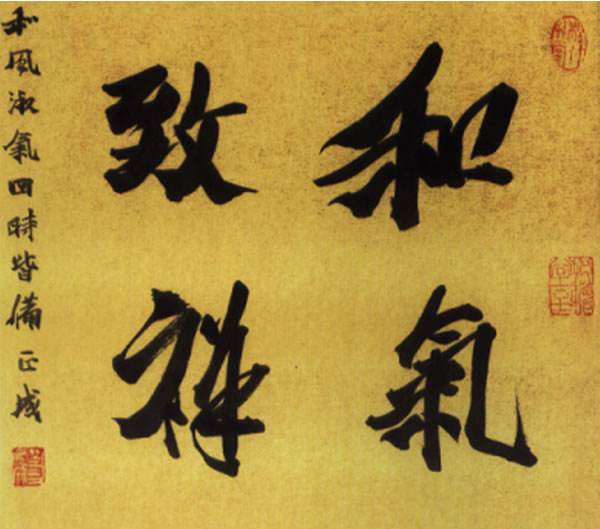 和氣
致祥
和風淑氣四時皆備正成